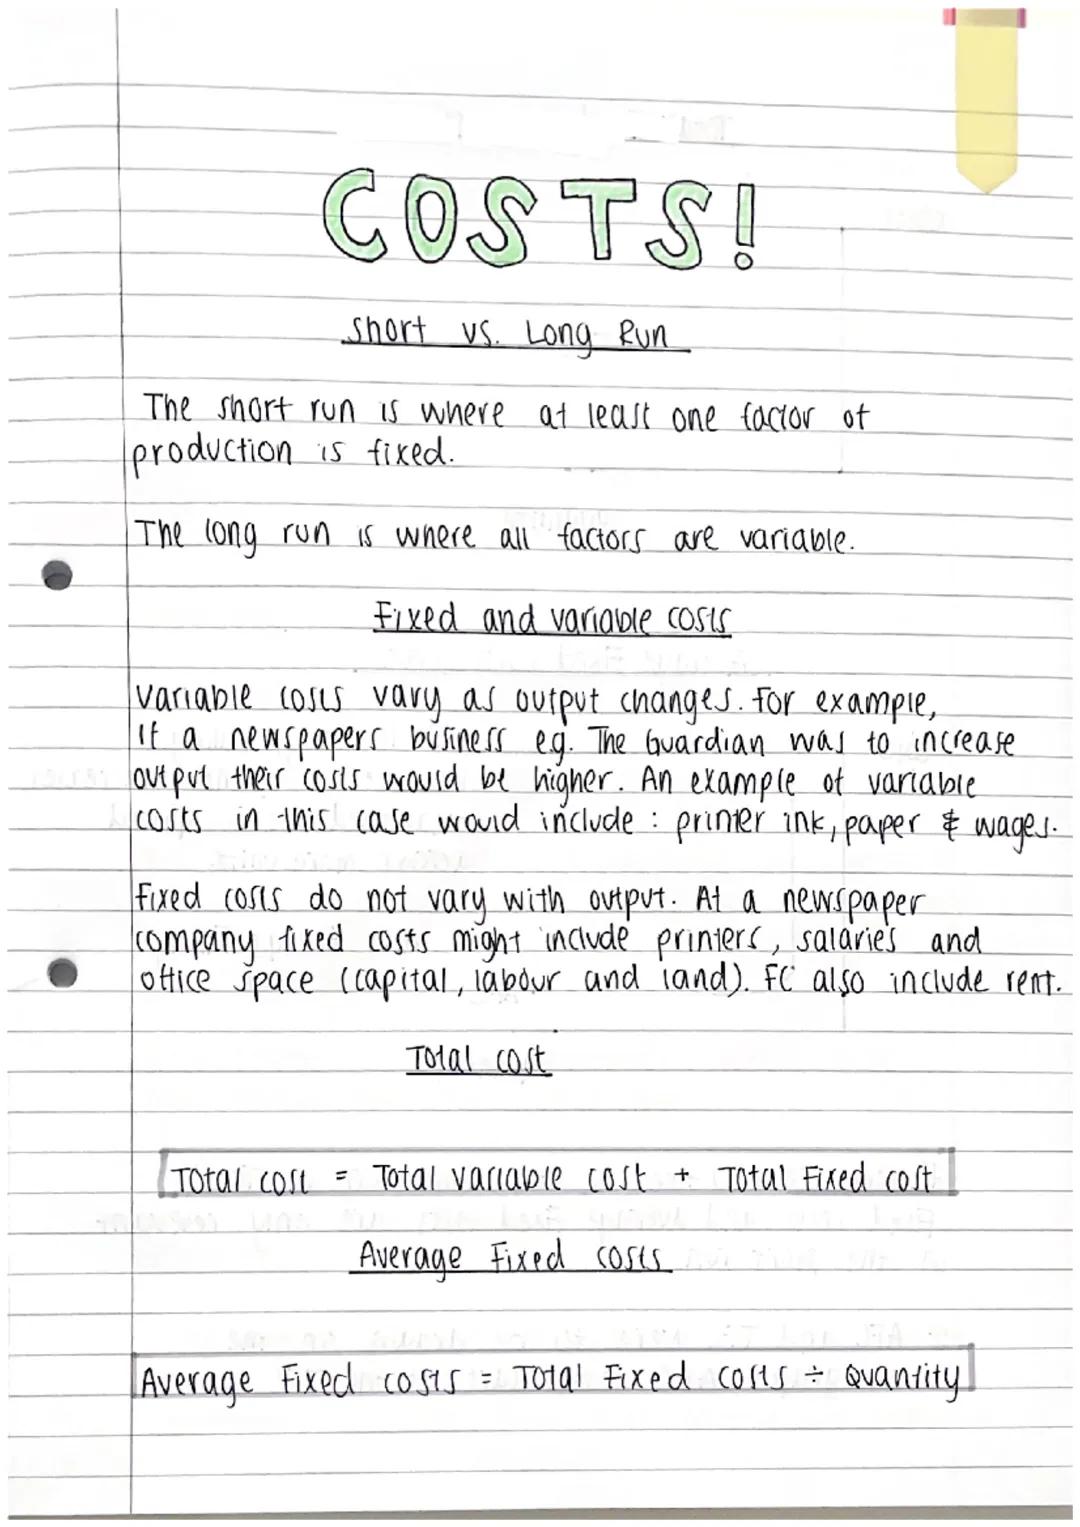 COSTS!
Short vs. Long Run
The short run is where at least one factor of
production is fixed.
The long run is where all factors are variable.
Fixed and variable costs
Variable costs vary as output changes. For example,
if a newspapers business eg. The Guardian was to increase
output their costs would be higher. An example of variable
costs in this case would include : printer ink, paper & wages.
Fixed costs do not vary with output. At a newspaper
company fixed costs might include printers, salaries and
office space (capital, labour and land). FC also include rent.
Total cost
Total cost = Total variable cost + Total Fixed cost
Average Fixed costs
Average Fixed costs = Total Fixed costs ÷ Quantity